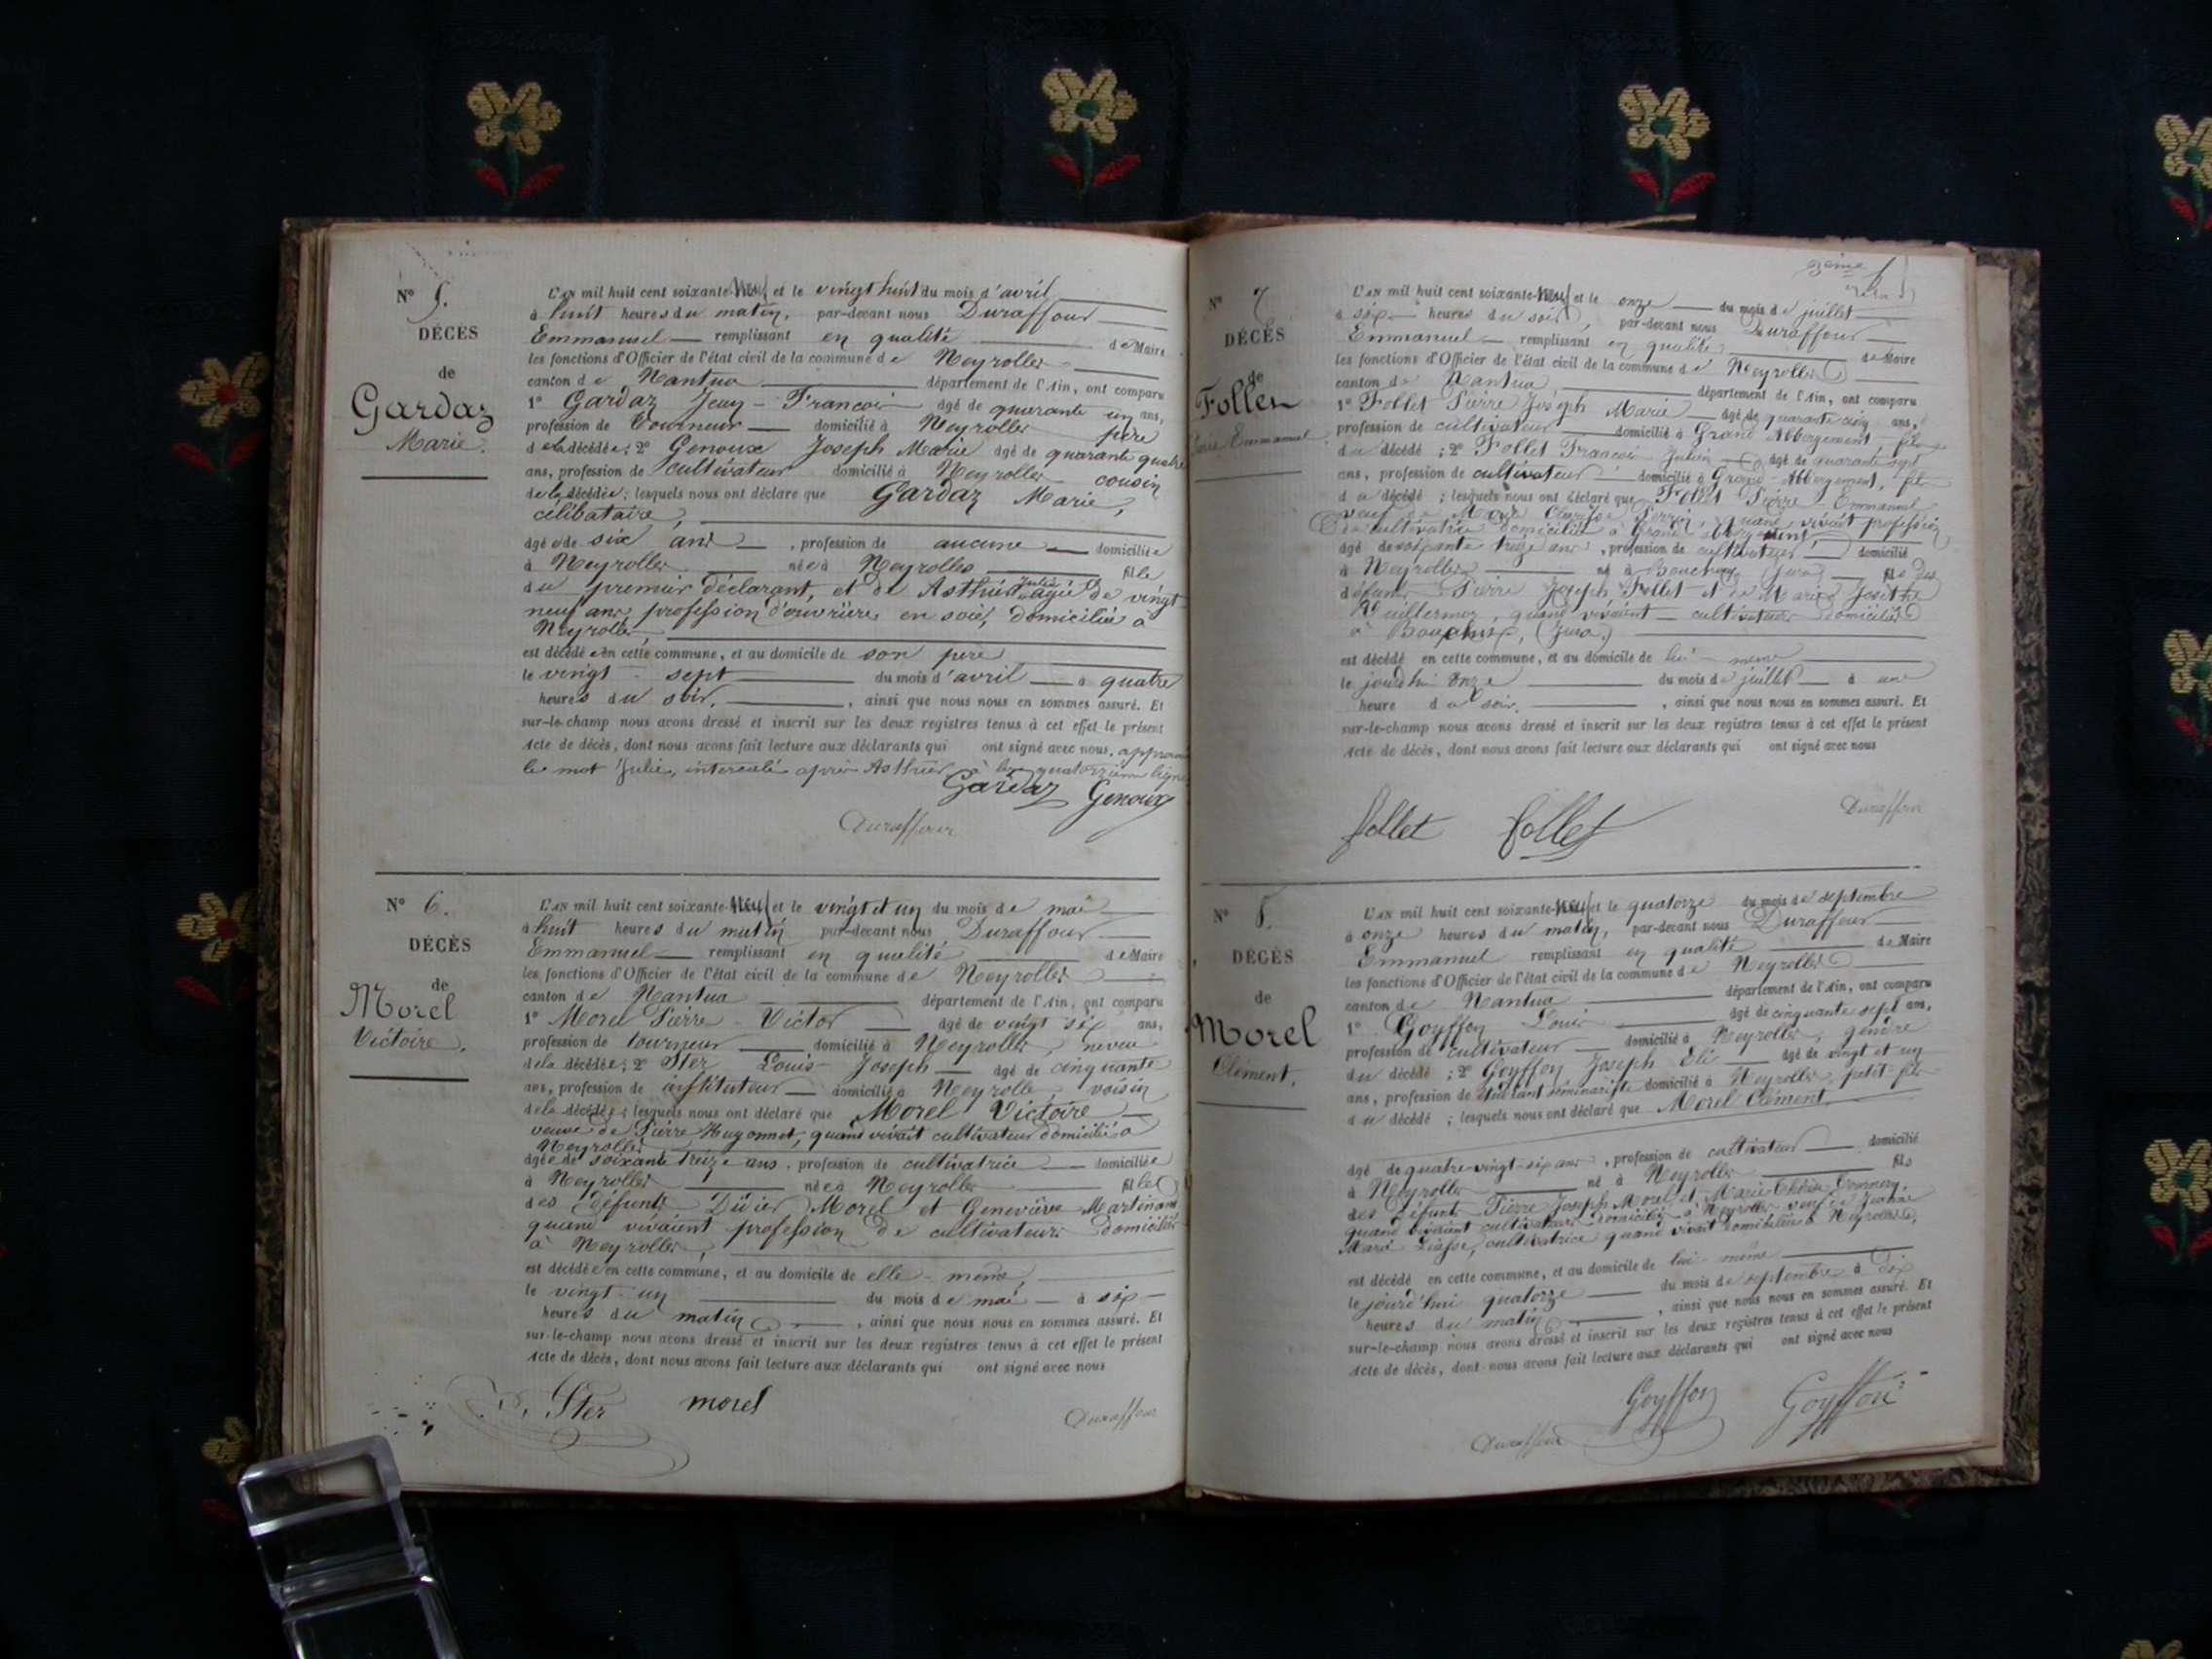 N° 5.
DÉCÈS
de
Gardaz
Marie.
L'AN mil huit cent soixante-neuf et le vingt huit du mois d'avril
à huit heures du matin, par-devant nous Duraffour
Emmanuel remplissant en qualité de Maire
les fonctions d'Officier de l'état civil de la commune de Neyrolles
canton de Nantua département de l'Ain, ont comparu
1° Gardaz Jean-François âgé de quarante un ans,
profession de Tourneur domicilié à Neyrolles père
de la décédée; 2° Genoux Joseph Marie âgé de quarante quatre
ans, profession de cultivateur domicilié à Neyrolles cousin
de la décédée; lesquels nous ont déclaré que Gardaz Marie,
célibataire,
âgée de six ans, profession de aucune domiciliée
à Neyrolles née à Neyrolles fille
du premier déclarant, et de Asthier Julie âgée de vingt
neuf ans, profession d'ouvrière en soie, domiciliée à
Neyrolles,
est décédée en cette commune, et au domicile de son père
le vingt-sept du mois d'avril à quatre
heures du soir, ainsi que nous nous en sommes assuré. Et
sur-le-champ nous avons dressé et inscrit sur les deux registres tenus à cet effet le présent
Acte de décès, dont nous avons fait lecture aux déclarants qui ont signé avec nous, approuvé
le mot Julie, intercalé après Asthier à la quatorzième ligne
Gardaz Genoux
Duraffour
N° 6.
DÉCÈS
de
Morel
Victoire.
L'AN mil huit cent soixante-neuf et le vingt et un du mois de mai
à huit heures du matin par-devant nous Duraffour
Emmanuel remplissant en qualité de Maire
les fonctions d'Officier de l'état civil de la commune de Neyrolles
canton de Nantua département de l'Ain, ont comparu
1° Morel Pierre-Victor âgé de vingt six ans,
profession de tourneur domicilié à Neyrolles, neveu
de la décédée; 2° Ster Louis-Joseph âgé de cinquante
ans, profession de instituteur domicilié à Neyrolles, voisin
de la décédée; lesquels nous ont déclaré que Morel Victoire
veuve de Pierre Hugonnet, quand vivait cultivateur domicilié à
Neyrolles
âgée de soixante treize ans, profession de cultivatrice domiciliée
à Neyrolles née à Neyrolles fille
des défunts Didier Morel et Geneviève Martinand
quand vivaient profession de cultivateurs domiciliés
à Neyrolles
est décédée en cette commune, et au domicile de elle-même,
le vingt-un du mois de mai à six
heures du matin, ainsi que nous nous en sommes assuré. Et
sur-le-champ nous avons dressé et inscrit sur les deux registres tenus à cet effet le présent
Acte de décès, dont nous avons fait lecture aux déclarants qui ont signé avec nous
Ster morel
Duraffour
N° 7
DÉCÈS
de
Follet
Pierre Emmanuel
L'AN mil huit cent soixante-neuf et le onze du mois de juillet
à six heures du soir, par-devant nous Duraffour
Emmanuel remplissant en qualité de Maire
les fonctions d'Officier de l'état civil de la commune de Neyrolles
canton de Nantua, département de l'Ain, ont comparu
1° Follet Pierre Joseph Marie âgé de quarante cinq ans,
profession de cultivateur domicilié à Grand Abbergement fils
du décédé; 2° Follet François Julien âgé de quarante sept
ans, profession de cultivateur domicilié à Grand-Abbergement, fils
du décédé; lesquels nous ont déclaré que Follet Pierre-Emmanuel
veuf de Marie Perrin, quand vivait profession
de cultivatrice domiciliée à Grand Abbergement,
âgé de soixante treize ans, profession de cultivateur domicilié
à Neyrolles né à Bouchoux Jura fils des
défunts Pierre Joseph Follet et de Marie Josèthe
Guillermoz, quand vivaient cultivateurs domiciliés
à Bouchoux, (Jura)
est décédé en cette commune, et au domicile de lui-même
le jourd'hui onze du mois de juillet à une
heure du soir, ainsi que nous nous en sommes assuré. Et
sur-le-champ nous avons dressé et inscrit sur les deux registres tenus à cet effet le présent
Acte de décès, dont nous avons fait lecture aux déclarants qui ont signé avec nous
Duraffour
follet follet
N° 8.
DÉCÈS
de
Morel
Clément.
L'AN mil huit cent soixante-neuf et le quatorze du mois de septembre
à onze heures du matin, par-devant nous Duraffour
Emmanuel remplissant en qualité de Maire
les fonctions d'Officier de l'état civil de la commune de Neyrolles
canton de Nantua département de l'Ain, ont comparu
1° Goyffon Louis âgé de cinquante sept ans,
profession de cultivateur domicilié à Neyrolles, gendre
du décédé; 2° Goyffon Joseph Eli âgé de vingt et un
ans, profession de étudiant séminariste domicilié à Neyrolles, petit fils
du décédé; lesquels nous ont déclaré que Morel Clément
âgé de quatre-vingt-six ans, profession de cultivateur domicilié
à Neyrolles né à Neyrolles fils
des défunts Pierre Joseph Morel et Marie
quand vivaient cultivateurs domiciliés à Neyrolles veuf de Jeanne
Marie cultivatrice quand vivait domiciliée à Neyrolles,
est décédé en cette commune, et au domicile de lui-même
le jourd'hui quatorze du mois de septembre à dix
heures du matin, ainsi que nous nous en sommes assuré. Et
sur-le-champ nous avons dressé et inscrit sur les deux registres tenus à cet effet le présent
Acte de décès, dont nous avons fait lecture aux déclarants qui ont signé avec nous
Goyffon Goyffon
Duraffour